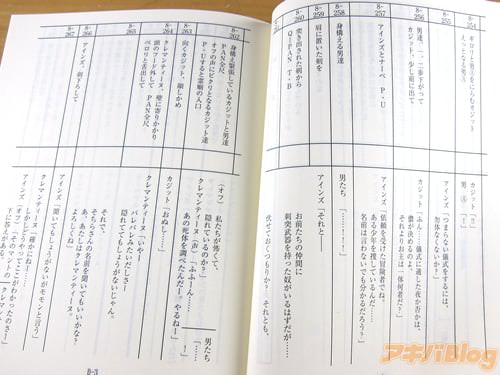 8-254
ギロリと男Ⓐをにらむカジット
8-255
えっとなる男Ⓐ
8-256
男達、一、二歩下がって
カジット、少し前に出て
8-257
アインズとナーベ P・U
8-258
身構える男達
8-259
肩に置いた剣を
8-260
突き出された剣から
QIPAN T・B
カジット「!!」
男Ⓐ「!」
アインズ「つまらない儀式をするには、
勿体なくないか?」
カジット「ふん…儀式に適した夜か否かは、
儂が決めるの
それよりお主は一体何者だ?」
アインズ「依頼を受けた冒険者でね。
ある少年を捜しているんだ…
名前は言わないでも分かるだろう?」
男たち「…………!」
アインズ「それと―
お前たちの仲間に
刺突武器を持った奴がいるはずだが…
伏せておくつもりか?それとも、
8-262
身構え緊張しているカジットと男達
PAN全尺、
オフの声にビクリとなるカジット達
P・Uすると霊廟の入口
8-263
向くカジット、顔しかめ
8-264
クレマンティーヌ、壁に寄りかかり
頭のフード外してPAN全尺、
ペロリと舌出して
8-265
8-266
アインズ、剣下ろして
8-267
(オフ) 私たちが怖くて、
隠れているのか?」
男たち「………!」
クレマンティーヌ(B)「ふふーん……
あの死体を調べたんだー。やるねー」
カジット「おぬし…」
クレマンティーヌ「いやー
バレバレみたいだしさー
隠れててもしょうがないじゃん。
それで、
そちらさんの名前を聞いてもいいかな?
あ、あたしはクレマンティーヌ。
よろしくね」
アインズ「聞いてもしょうがないがモモンと言う」
クレマンティーヌ「確かにね
アインズ(オフ)
B-31
アキバBlog